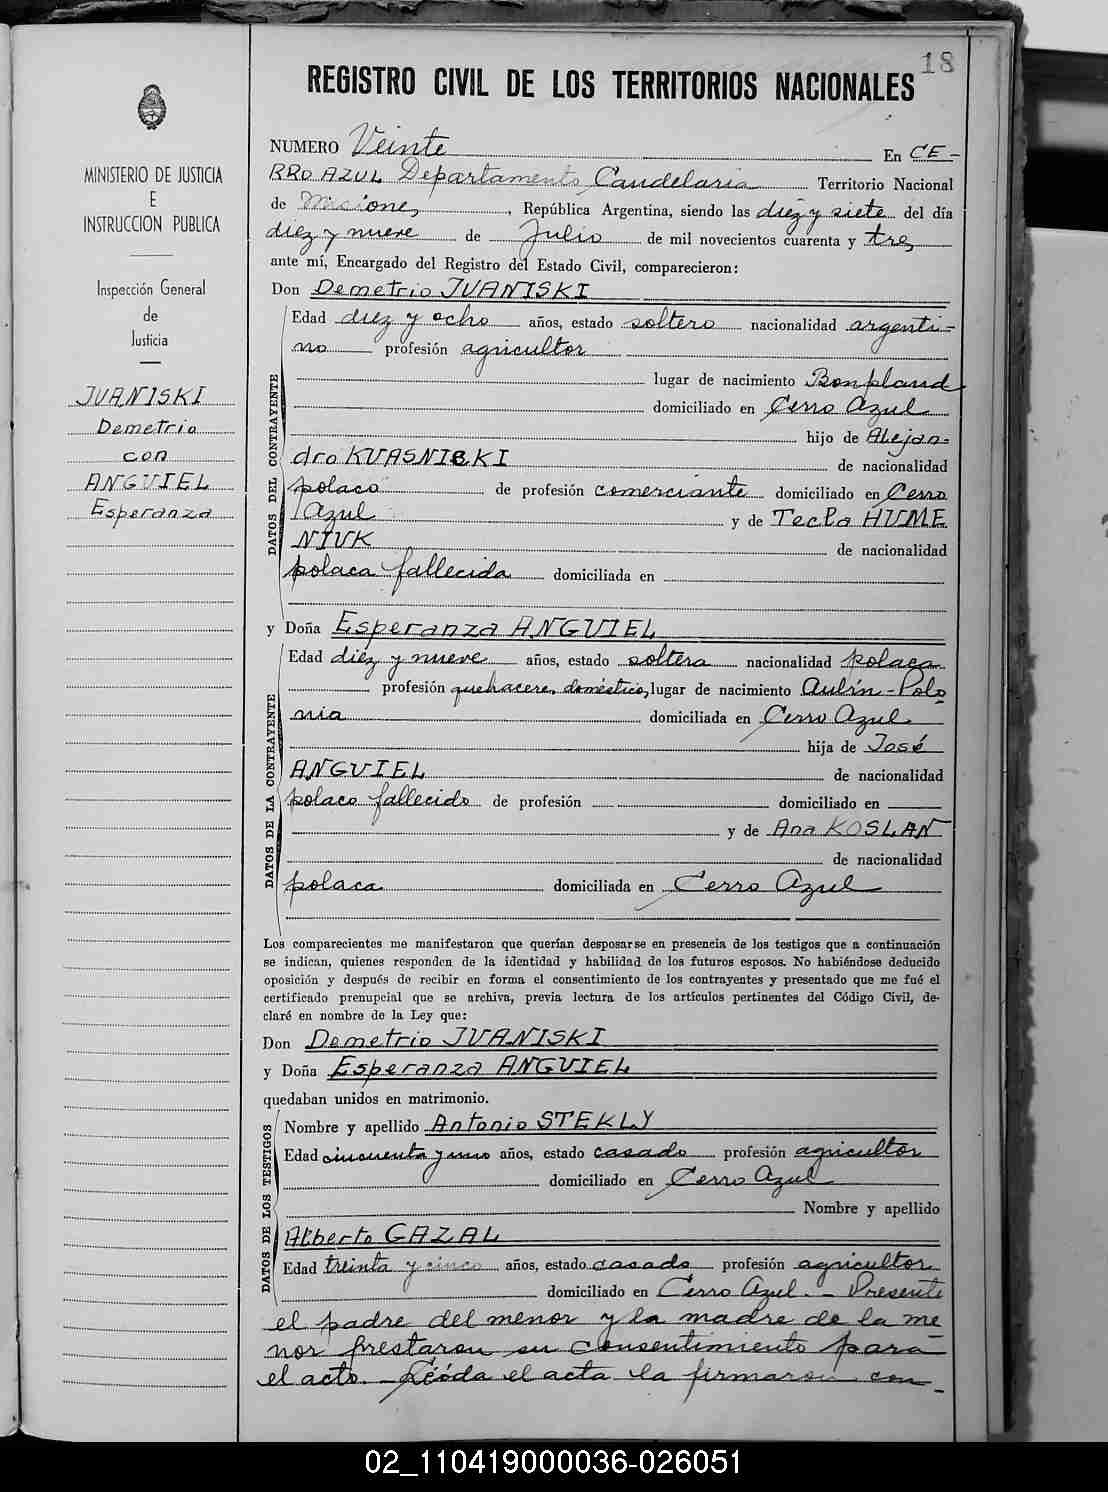 18
REGISTRO CIVIL DE LOS TERRITORIOS NACIONALES
MINISTERIO DE JUSTICIA
E
INSTRUCCION PUBLICA
Inspección General
de
Justicia
IVANISKI
Demetrio
con
ANGUIEL
Esperanza
NUMERO Veinte En CE-
RRO AZUL Departamento Candelaria Territorio Nacional
de Misiones, República Argentina, siendo las diez y siete del día
diez y nueve de Julio de mil novecientos cuarenta y tres
ante mí, Encargado del Registro del Estado Civil, comparecieron:
Don Demetrio IVANISKI
DATOS DEL CONTRAYENTE
Edad diez y ocho años, estado soltero nacionalidad argenti-
no profesión agricultor
lugar de nacimiento Bonpland
domiciliado en Cerro Azul
hijo de Alejan-
dro KVASNISKI de nacionalidad
polaco de profesión comerciante domiciliado en Cerro
Azul y de Tecla HUME
NIUK de nacionalidad
polaca fallecida domiciliada en
y Doña Esperanza ANGUIEL
DATOS DE LA CONTRAYENTE
Edad diez y nueve años, estado soltera nacionalidad polaca
profesión quehaceres domésticos, lugar de nacimiento Aulín-Polo
nia domiciliada en Cerro Azul
hija de José
ANGUIEL de nacionalidad
polaco fallecido de profesión domiciliado en
y de Ana KOSLAN
de nacionalidad
polaca domiciliada en Cerro Azul
Los comparecientes me manifestaron que querían desposarse en presencia de los testigos que a continuación
se indican, quienes responden de la identidad y habilidad de los futuros esposos. No habiéndose deducido
oposición y después de recibir en forma el consentimiento de los contrayentes y presentado que me fué el
certificado prenupcial que se archiva, previa lectura de los artículos pertinentes del Código Civil, de-
claré en nombre de la Ley que:
Don Demetrio IVANISKI
y Doña Esperanza ANGUIEL
quedaban unidos en matrimonio.
DATOS DE LOS TESTIGOS
Nombre y apellido Antonio STEKLY
Edad cincuenta y uno años, estado casado profesión agricultor
domiciliado en Cerro Azul
Nombre y apellido
Alberto GAZAL
Edad treinta y cinco años, estado casado profesión agricultor
domiciliado en Cerro Azul.- Presente
el padre del menor y la madre de la me
nor prestaron su consentimiento para
el acto.- Leída el acta la firmaron con-
02_110419000036-026051